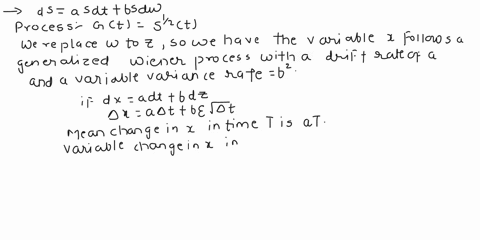 → ds = a s dt + b s dw
Process:- G(t) = s^{1/2}(t)
We replace w to z, so we have the variable x follows a
generalized wiener process with a drift rate of a
and a variable variance rate = b².
if dx = adt + bdz
Δx = aΔt + bε√Δt
Mean change in x in time T is aT.
variable change in x in